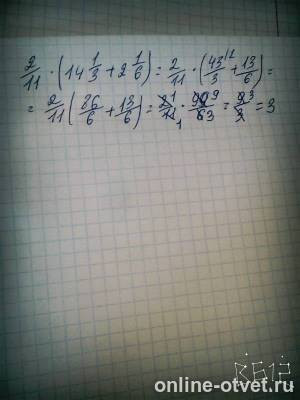 2/11 · (14 1/3 + 2 1/6) = 2/11 · (43/3 + 13/6) =
= 2/11 (86/6 + 13/6) = 2/11 · 99/6 = 9/3 = 3
B612
online-otvet.ru